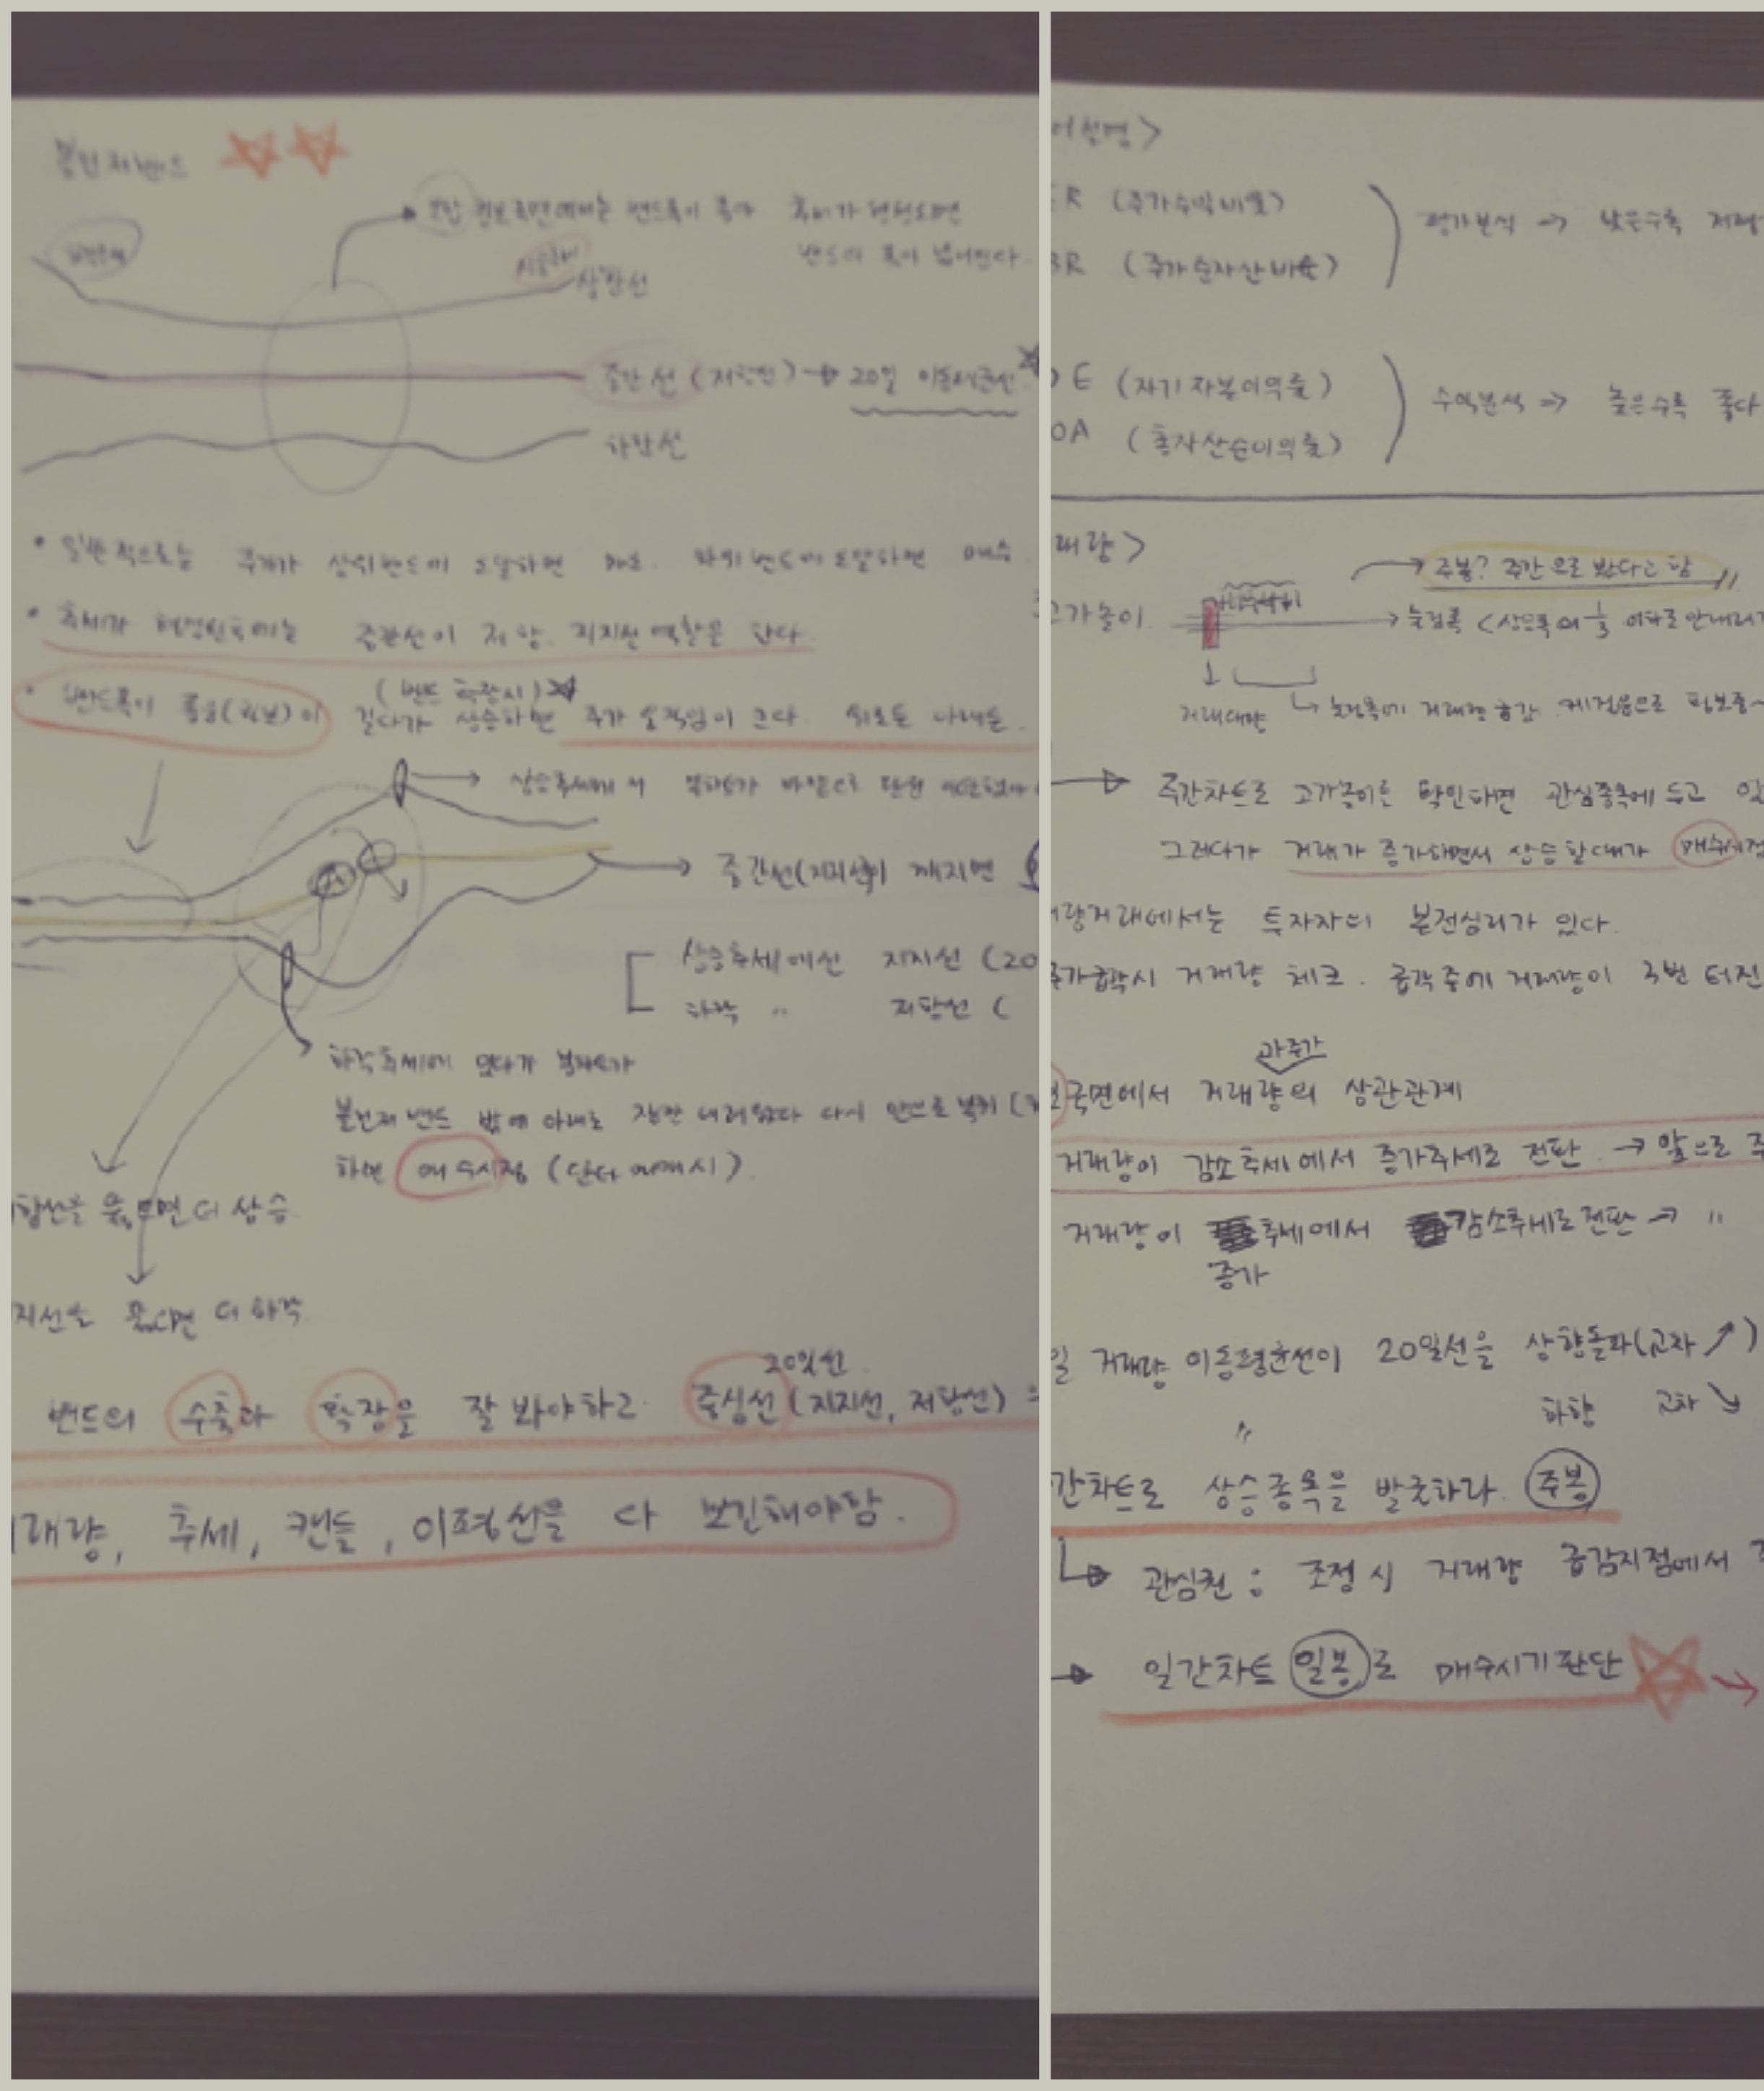 볼린저밴드
횡보국면에서는 밴드폭이 추세가 형성되면
밴드의 폭이 넓어진다.
상한선
중간선 (저항선) → 20일 이동평균선
하한선
• 일반적으로는 주가가 상위밴드에 도달하면 매도. 하위밴드에 도달하면 매수.
• 추세가 형성된후에는 중간선이 저항. 지지선 역할을 한다.
(밴드 확장시)
• 밴드폭이 좁음(횡보)이 길다가 상승하면 주가 움직임이 크다. 위로든 아래든.
상승추세에서
중간선(지지선)이 깨지면
상승추세에선 지지선 (20
하락 〃 저항선 (
하락추세에 있다가 봉차트가
볼린저밴드 밖에 아래로 잠깐 내려왔다 다시 안으로 복귀
하면 매수시점 (단타매매시).
항선을 뚫으면 더 상승.
지선을 뚫으면 더 하락.
20일선
밴드의 수축과 확장을 잘 봐야하고 중심선 (지지선, 저항선)
래량, 추세, 캔들, 이평선을 다 보긴해야함.
어설명>
ER (주가수익비율)
평가분석 → 낮은수록 저평
BR (주가순자산비율)
OE (자기자본이익률)
수익분석 → 높은수록 좋다
OA (총자산순이익률)
래량>
주봉? 주간으로 봤다고 함
고가놀이. → 눌림목 <상승폭의 1/3 이하로 안내려가
거래대량
눌림목에 거래량 급감.
주간차트로 고가놀이를 확인하면 관심종목에 두고 있
그러다가 거래가 증가하면서 상승할대가 매수시점
량거래에서는 투자자의 본전심리가 있다.
주가급락시 거래량 체크. 급락중에 거래량이 3번 터진
과 주가
국면에서 거래량의 상관관계
거래량이 감소추세에서 증가추세로 전환. → 앞으로 주
거래량이 추세에서 감소추세로 전환 → 〃
증가
일 거래량 이동평균선이 20일선을 상향돌파(교차 ↗)
〃 하향 교차 ↘
간차트로 상승종목을 발굴하라. 주봉
관심권 : 조정시 거래량 급감지점에서
→ 일간차트 일봉로 매수시기판단 →